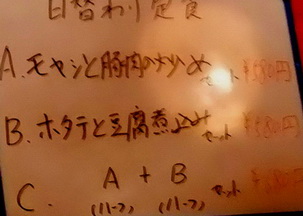 日替わり定食
A. モヤシと豚肉の炒め セット ¥580円
B. ホタテと豆腐煮込み セット ¥580円
C. A + B セット
(ハーフ) (ハーフ)